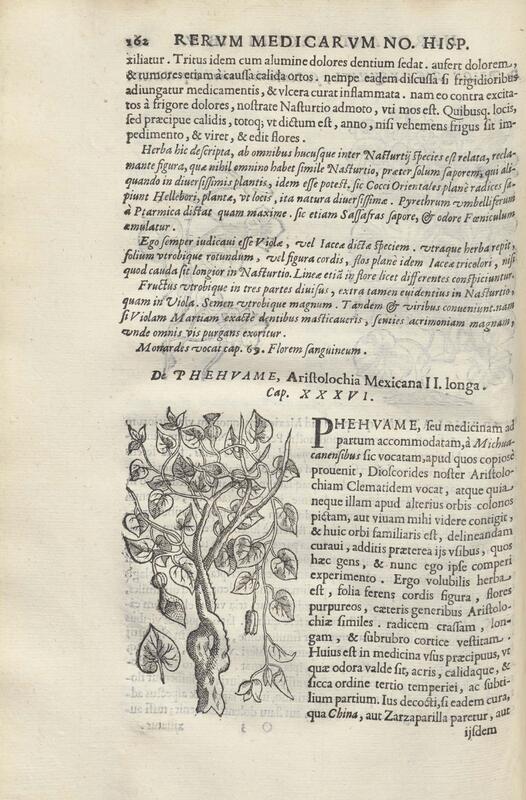 162 RERVM MEDICARVM NO. HISP.
xiliatur. Tritus idem cum alumine dolores dentium sedat. aufert dolorem,
& tumores etiam à caussa calida ortos. nempe eadem discussa si frigidioribus
adiungatur medicamentis, & vlcera curat inflammata. nam eo contra excita-
tos à frigore dolores, nostrate Nasturtio admoto, vti mos est. Quibusq. locis,
sed præcipue calidis, totoq; vt dictum est, anno, nisi vehemens frigus sit im-
pedimento, & viret, & edit flores.
Herba hic descripta, ab omnibus hucusque inter Nasturtij species est relata, recla-
mante figura, quæ nihil omnino habet simile Nasturtio, præter solum saporem, qui ali-
quando in diuersissimis plantis, idem esse potest. sic Cocci Orientales planè radices sa-
piunt Hellebori, plantæ, vt locis, ita natura diuersissimæ. Pyrethrum vmbelliferum
à Ptarmica distat quam maxime. sic etiam Sassafras sapore, & odore Fœniculum
æmulatur.
Ego semper iudicaui esse Violæ, vel Iaceæ dictæ speciem. vtraque herba repit,
folium vtrobique rotundum, vel figura cordis, flos planè idem Iaceæ tricolori, nisi
quod cauda sit longior in Nasturtio. Lineæ etiã in flore licet differentes conspiciuntur.
Fructus vtrobique in tres partes diuisus, extra tamen euidentius in Nasturtio,
quam in Viola. Semen vtrobique magnum. Tandem & viribus conueniunt. nam
si Violam Martiam exactè dentibus masticaueris, senties acrimoniam magnam,
vnde omnis vis purgans exoritur.
Monardes vocat cap. 63. Florem sanguineum.
De PHEHVAME, Aristolochia Mexicana II. longa.
Cap. XXXVI.
PHEHVAME, seu medicinam ad
partum accommodatam, à Michua-
canensibus sic vocatam, apud quos copiosè
prouenit, Dioscorides noster Aristolo-
chiam Clematidem vocat, atque quia
neque illam apud alterius orbis colonos
pictam, aut viuam mihi videre contigit,
& huic orbi familiaris est, delineandam
curaui, additis præterea ijs vsibus, quos
hæc gens, & nunc ego ipse comperi
experimento. Ergo volubilis herba
est, folia ferens cordis figura, flores
purpureos, cæteris generibus Aristolo-
chiæ similes. radicem crassam, lon-
gam, & subrubro cortice vestitam.
Huius est in medicina vsus præcipuus, vt
quæ odora valde sit, acris, calidaque, &
sicca ordine tertio temperiei, ac subti-
lium partium. Ius decocti, si eadem cura,
qua China, aut Zarzaparilla paretur, aut
ijsdem